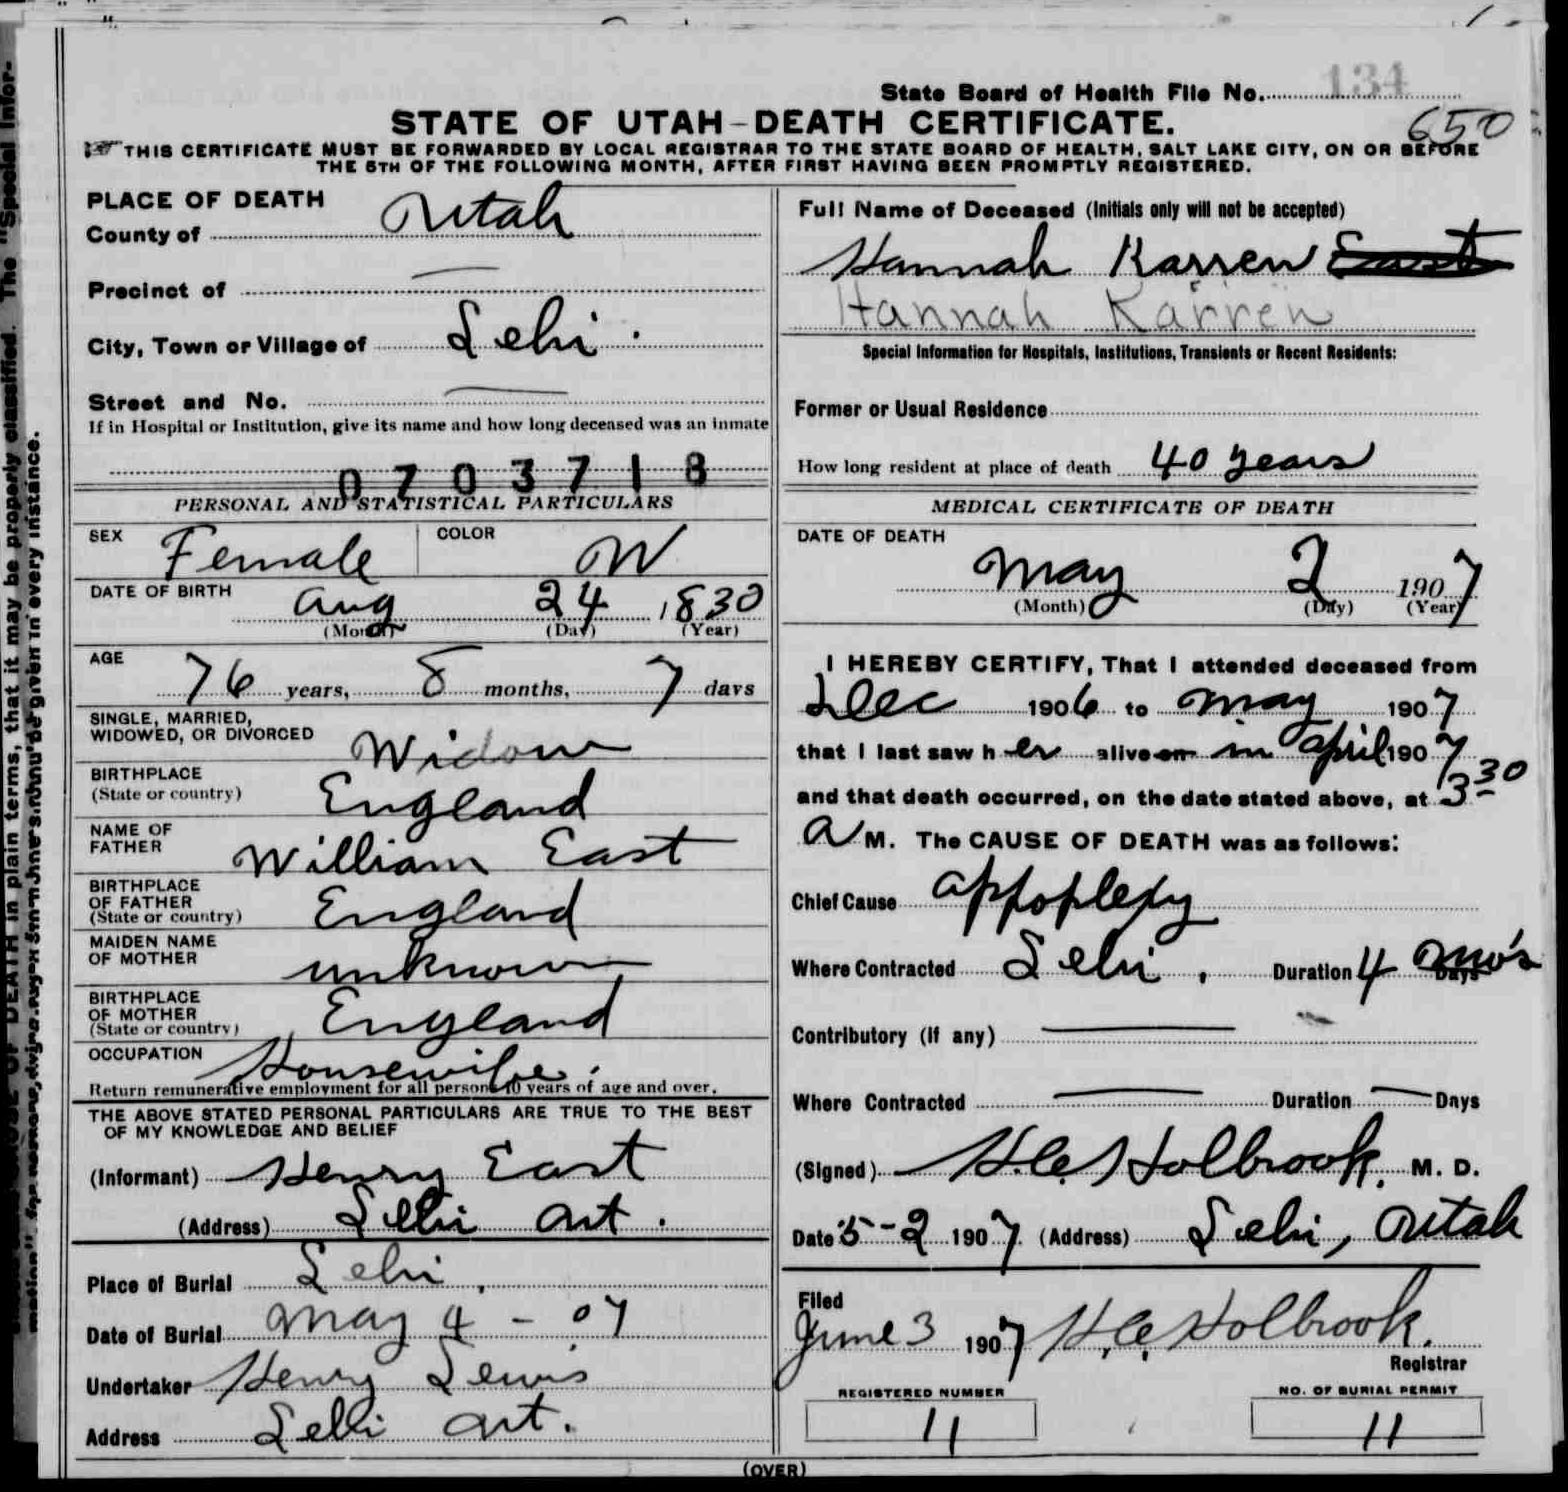 134
State Board of Health File No.
650
STATE OF UTAH-DEATH CERTIFICATE.
THIS CERTIFICATE MUST BE FORWARDED BY LOCAL REGISTRAR TO THE STATE BOARD OF HEALTH, SALT LAKE CITY, ON OR BEFORE
THE 5TH OF THE FOLLOWING MONTH, AFTER FIRST HAVING BEEN PROMPTLY REGISTERED.
PLACE OF DEATH
County of Utah
Precinct of —
City, Town or Village of Lehi.
Street and No. —
If in Hospital or Institution, give its name and how long deceased was an inmate
0703718
PERSONAL AND STATISTICAL PARTICULARS
SEX Female COLOR W
DATE OF BIRTH Aug 24 1830
(Month) (Day) (Year)
AGE
76 years, 8 months, 7 days
SINGLE, MARRIED,
WIDOWED, OR DIVORCED Widow
BIRTHPLACE
(State or country) England
NAME OF
FATHER William East
BIRTHPLACE
OF FATHER
(State or country) England
MAIDEN NAME
OF MOTHER unknown
BIRTHPLACE
OF MOTHER
(State or country) England
OCCUPATION Housewife.
Return remunerative employment for all persons 10 years of age and over.
THE ABOVE STATED PERSONAL PARTICULARS ARE TRUE TO THE BEST
OF MY KNOWLEDGE AND BELIEF
(Informant) Henry East
(Address) Lehi Ut.
Place of Burial Lehi,
Date of Burial May 4 - 07
Undertaker Henry Lewis
Address Lehi Ut.
Full Name of Deceased (Initials only will not be accepted)
Hannah Karren East
Hannah Karren
Special Information for Hospitals, Institutions, Transients or Recent Residents:
Former or Usual Residence
How long resident at place of death 40 years
MEDICAL CERTIFICATE OF DEATH
DATE OF DEATH
May 2 1907
(Month) (Day) (Year)
I HEREBY CERTIFY, That I attended deceased from
Dec 1906 to May 1907
that I last saw her alive on in April 1907
and that death occurred, on the date stated above, at 3 30
a M. The CAUSE OF DEATH was as follows:
Chief Cause appoplexy
Where Contracted Lehi, Duration 4 mo's Days
Contributory (If any) —
Where Contracted — Duration — Days
(Signed) H.C. Holbrook. M. D.
Date 5-2 1907 (Address) Lehi, Utah
Filed
June 3 1907 H.C. Holbrook.
Registrar
REGISTERED NUMBER NO. OF BURIAL PERMIT
11 11
(OVER)